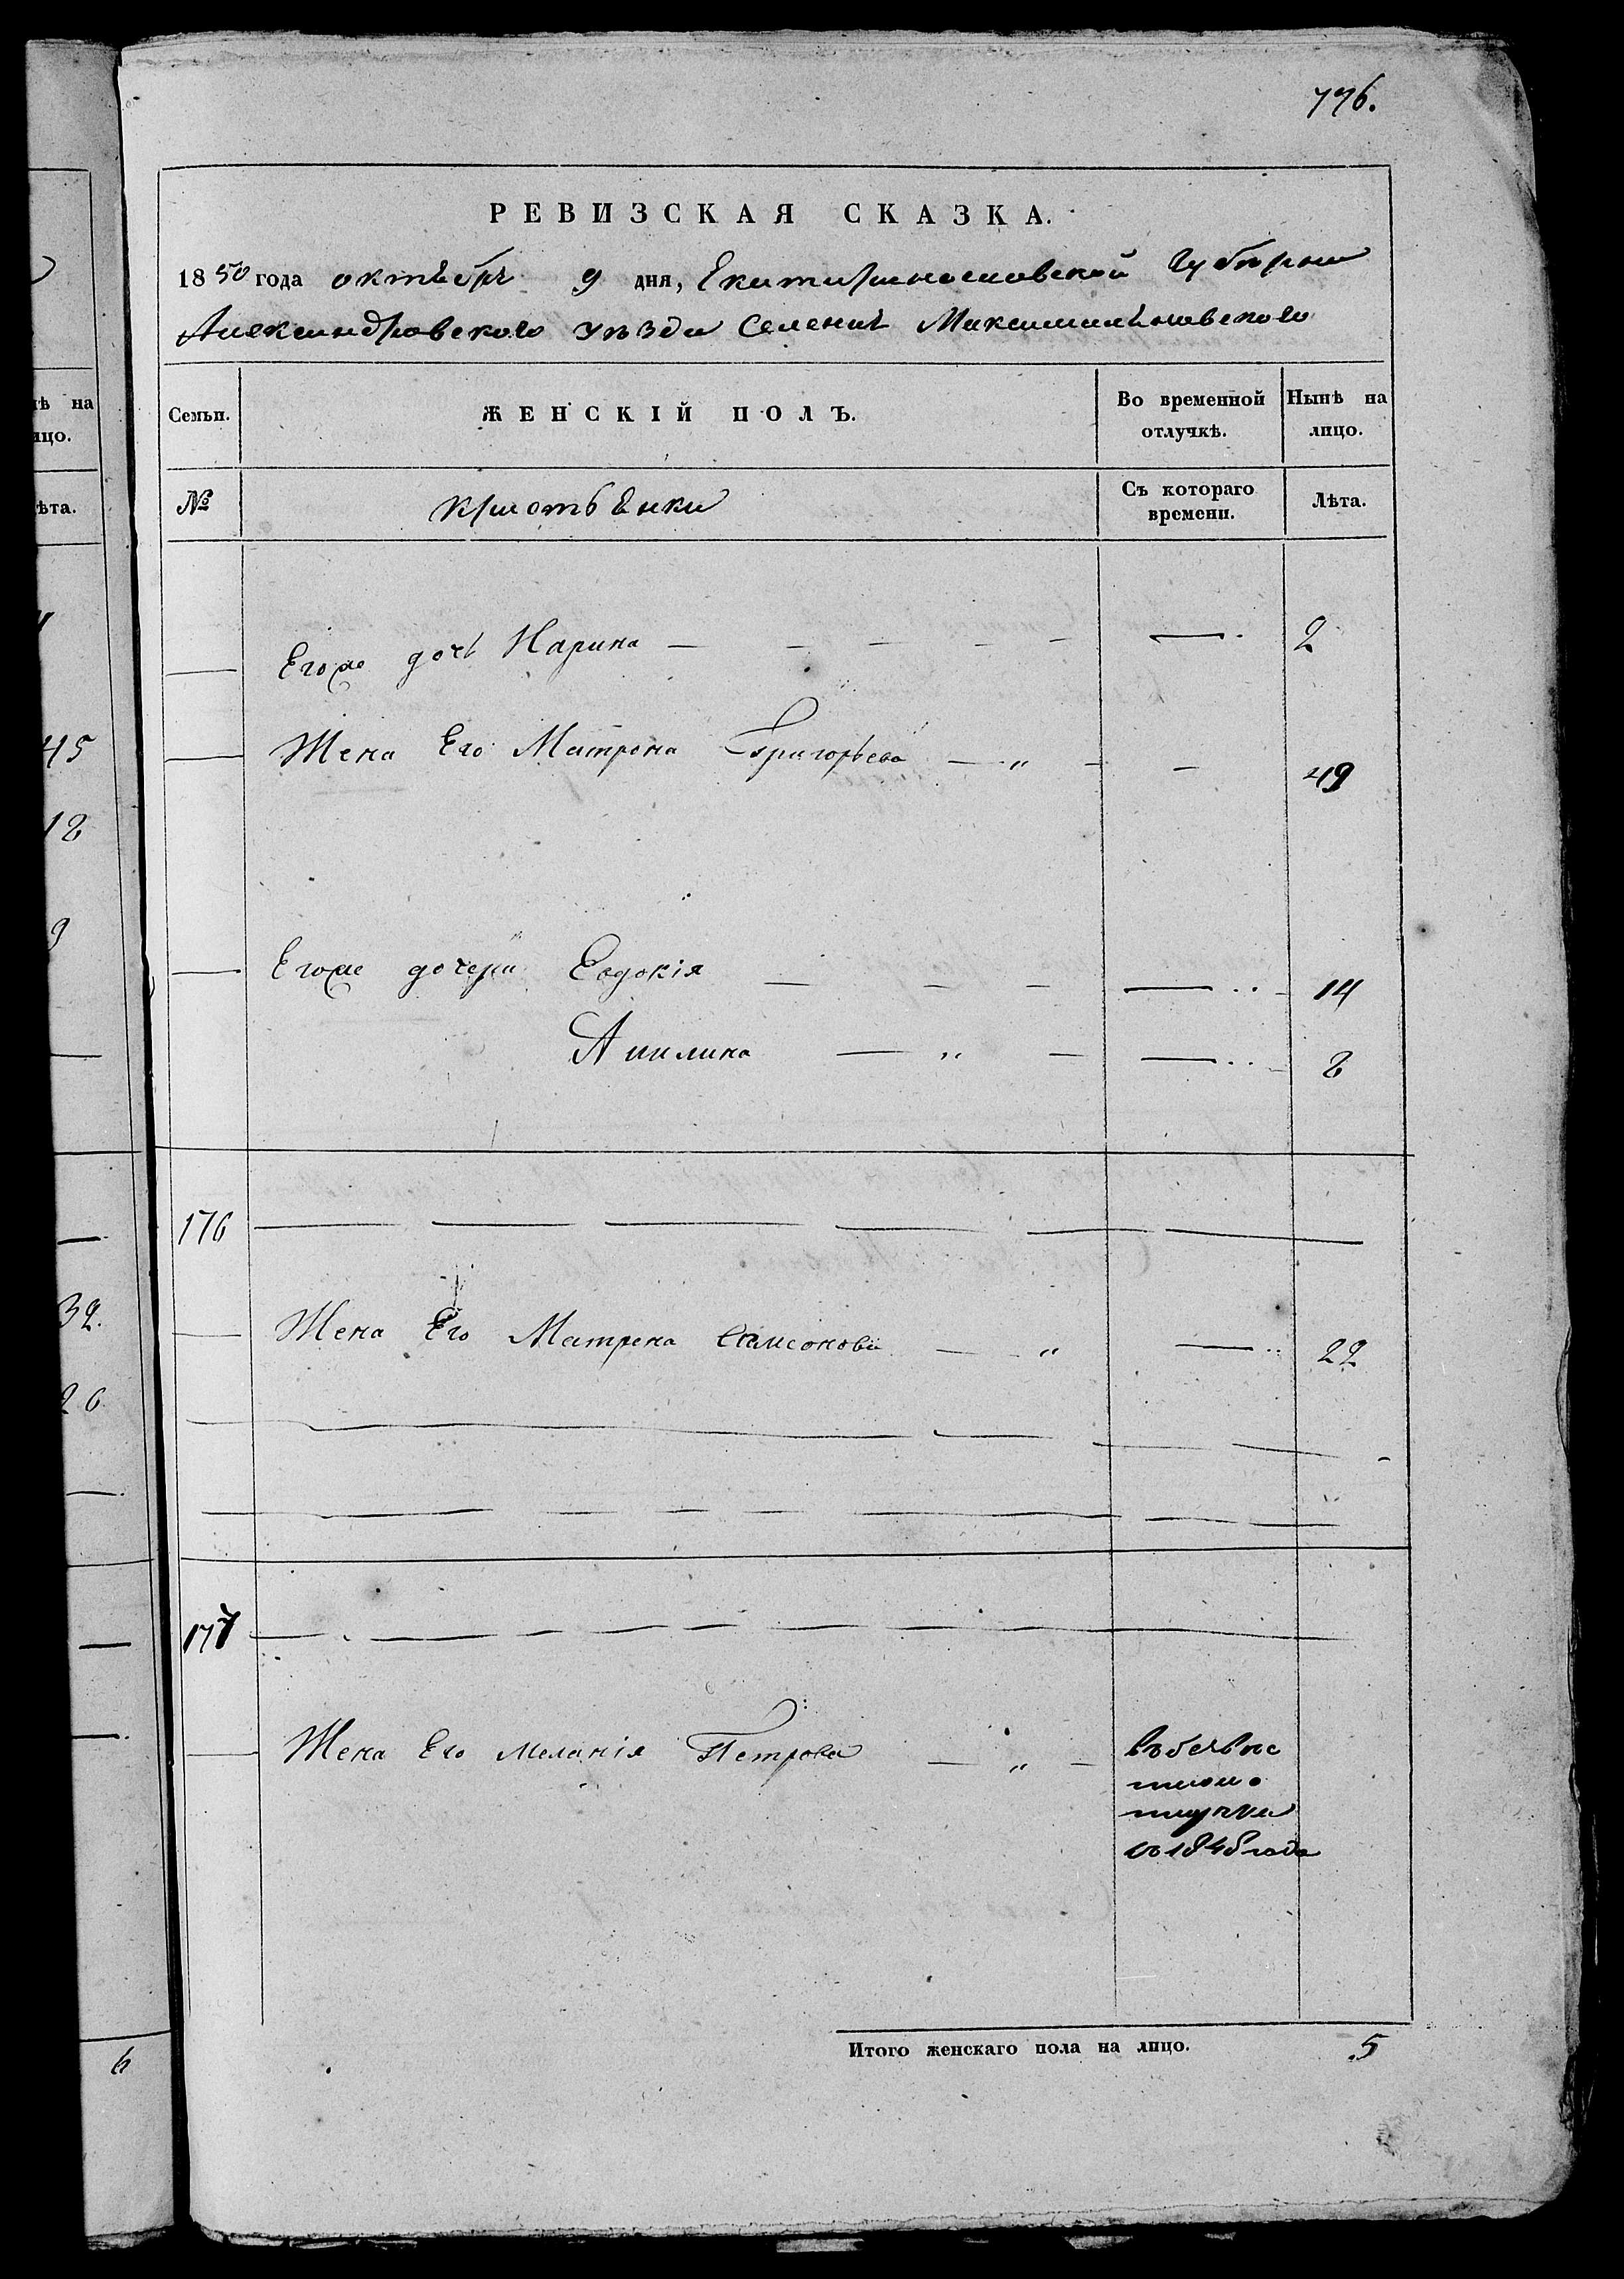 776.
РЕВИЗСКАЯ СКАЗКА.
1850 года октября 9 дня, Екатеринославской Губернии
Александровского уѣзда Селения Максимильяновского
Семьи. ЖЕНСКІЙ ПОЛЪ. Во временной отлучкѣ. Нынѣ на лицо.
№ крестьянки Съ котораго времени. Лѣта.
Его же дочь Марина — — — — — — 2
Жена Его Матрона Григорьева — „ — — 49
Его же дочери Евдокія — — — — 14
Акилина — „ — — 8
176 — — — — — —
Жена Его Матрена Самсонова — „ — 22
177 — — — — — — — — —
Жена Его Меланія Петрова — „ — въ безвѣс
тной о
тлучки
съ 1848 года
Итого женскаго пола на лицо. 5
нѣ на
лицо.
лѣта.
45
18
9
32.
26
6